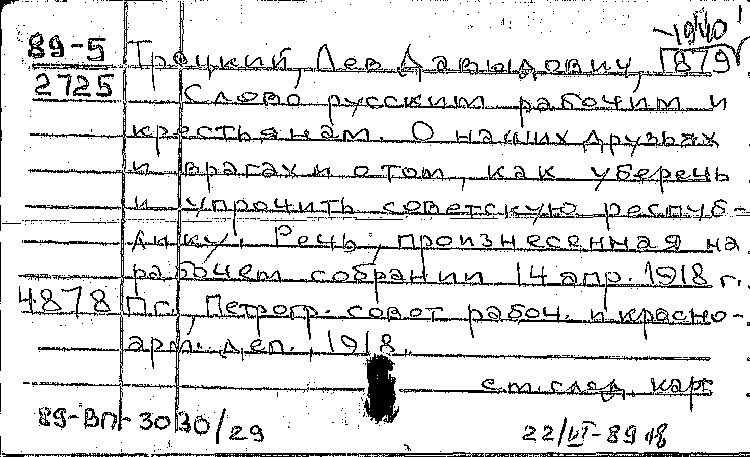 -1940
89-5 Троцкий, Лев Давыдович, 1879
2725 Слово русским рабочим и
крестьянам. О наших друзьях
и врагах и о том, как уберечь
и упрочить советскую респуб-
лику. Речь, произнесенная на
рабочем собрании 14 апр. 1918 г.
4878 Пг., Петрогр. совет рабоч. и красно-
арм. деп., 1918.
см. след. карт
89-ВП-3030/29 22/VI-89